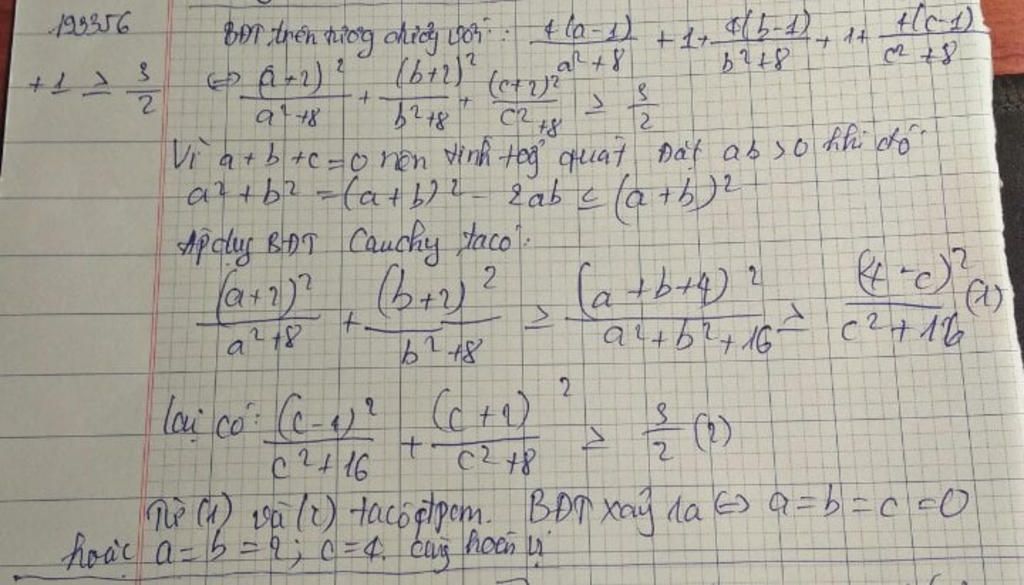 193356
BĐT trên tương đương với: 4(a-1)/(a²+8) + 1 + 4(b-1)/(b²+8) + 1 + 4(c-1)/(c²+8)
+ 1 ≥ 3/2 ⇔ (a+2)²/(a²+8) + (b+2)²/(b²+8) + (c+2)²/(c²+8) ≥ 3/2
Vì a+b+c=0 nên tính tổg quát Đặt ab>0 khi đó
a²+b² = (a+b)² - 2ab ≤ (a+b)²
Áp dụg BĐT Cauchy ta có:
(a+2)²/(a²+8) + (b+2)²/(b²+8) ≥ (a+b+4)²/(a²+b²+16) ≥ (4-c)²/(c²+16) (1)
Lại có: (c-4)²/(c²+16) + (c+2)²/(c²+8) ≥ 3/2 (2)
Từ (1) và (2) ta có đpcm. BĐT xảy ra ⇔ a=b=c=0
hoặc a=b=2; c=4 hoán vị